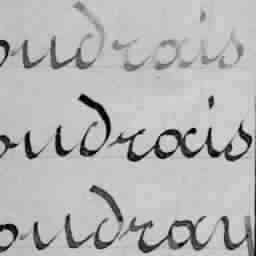 oudrais
oudrais
oudray